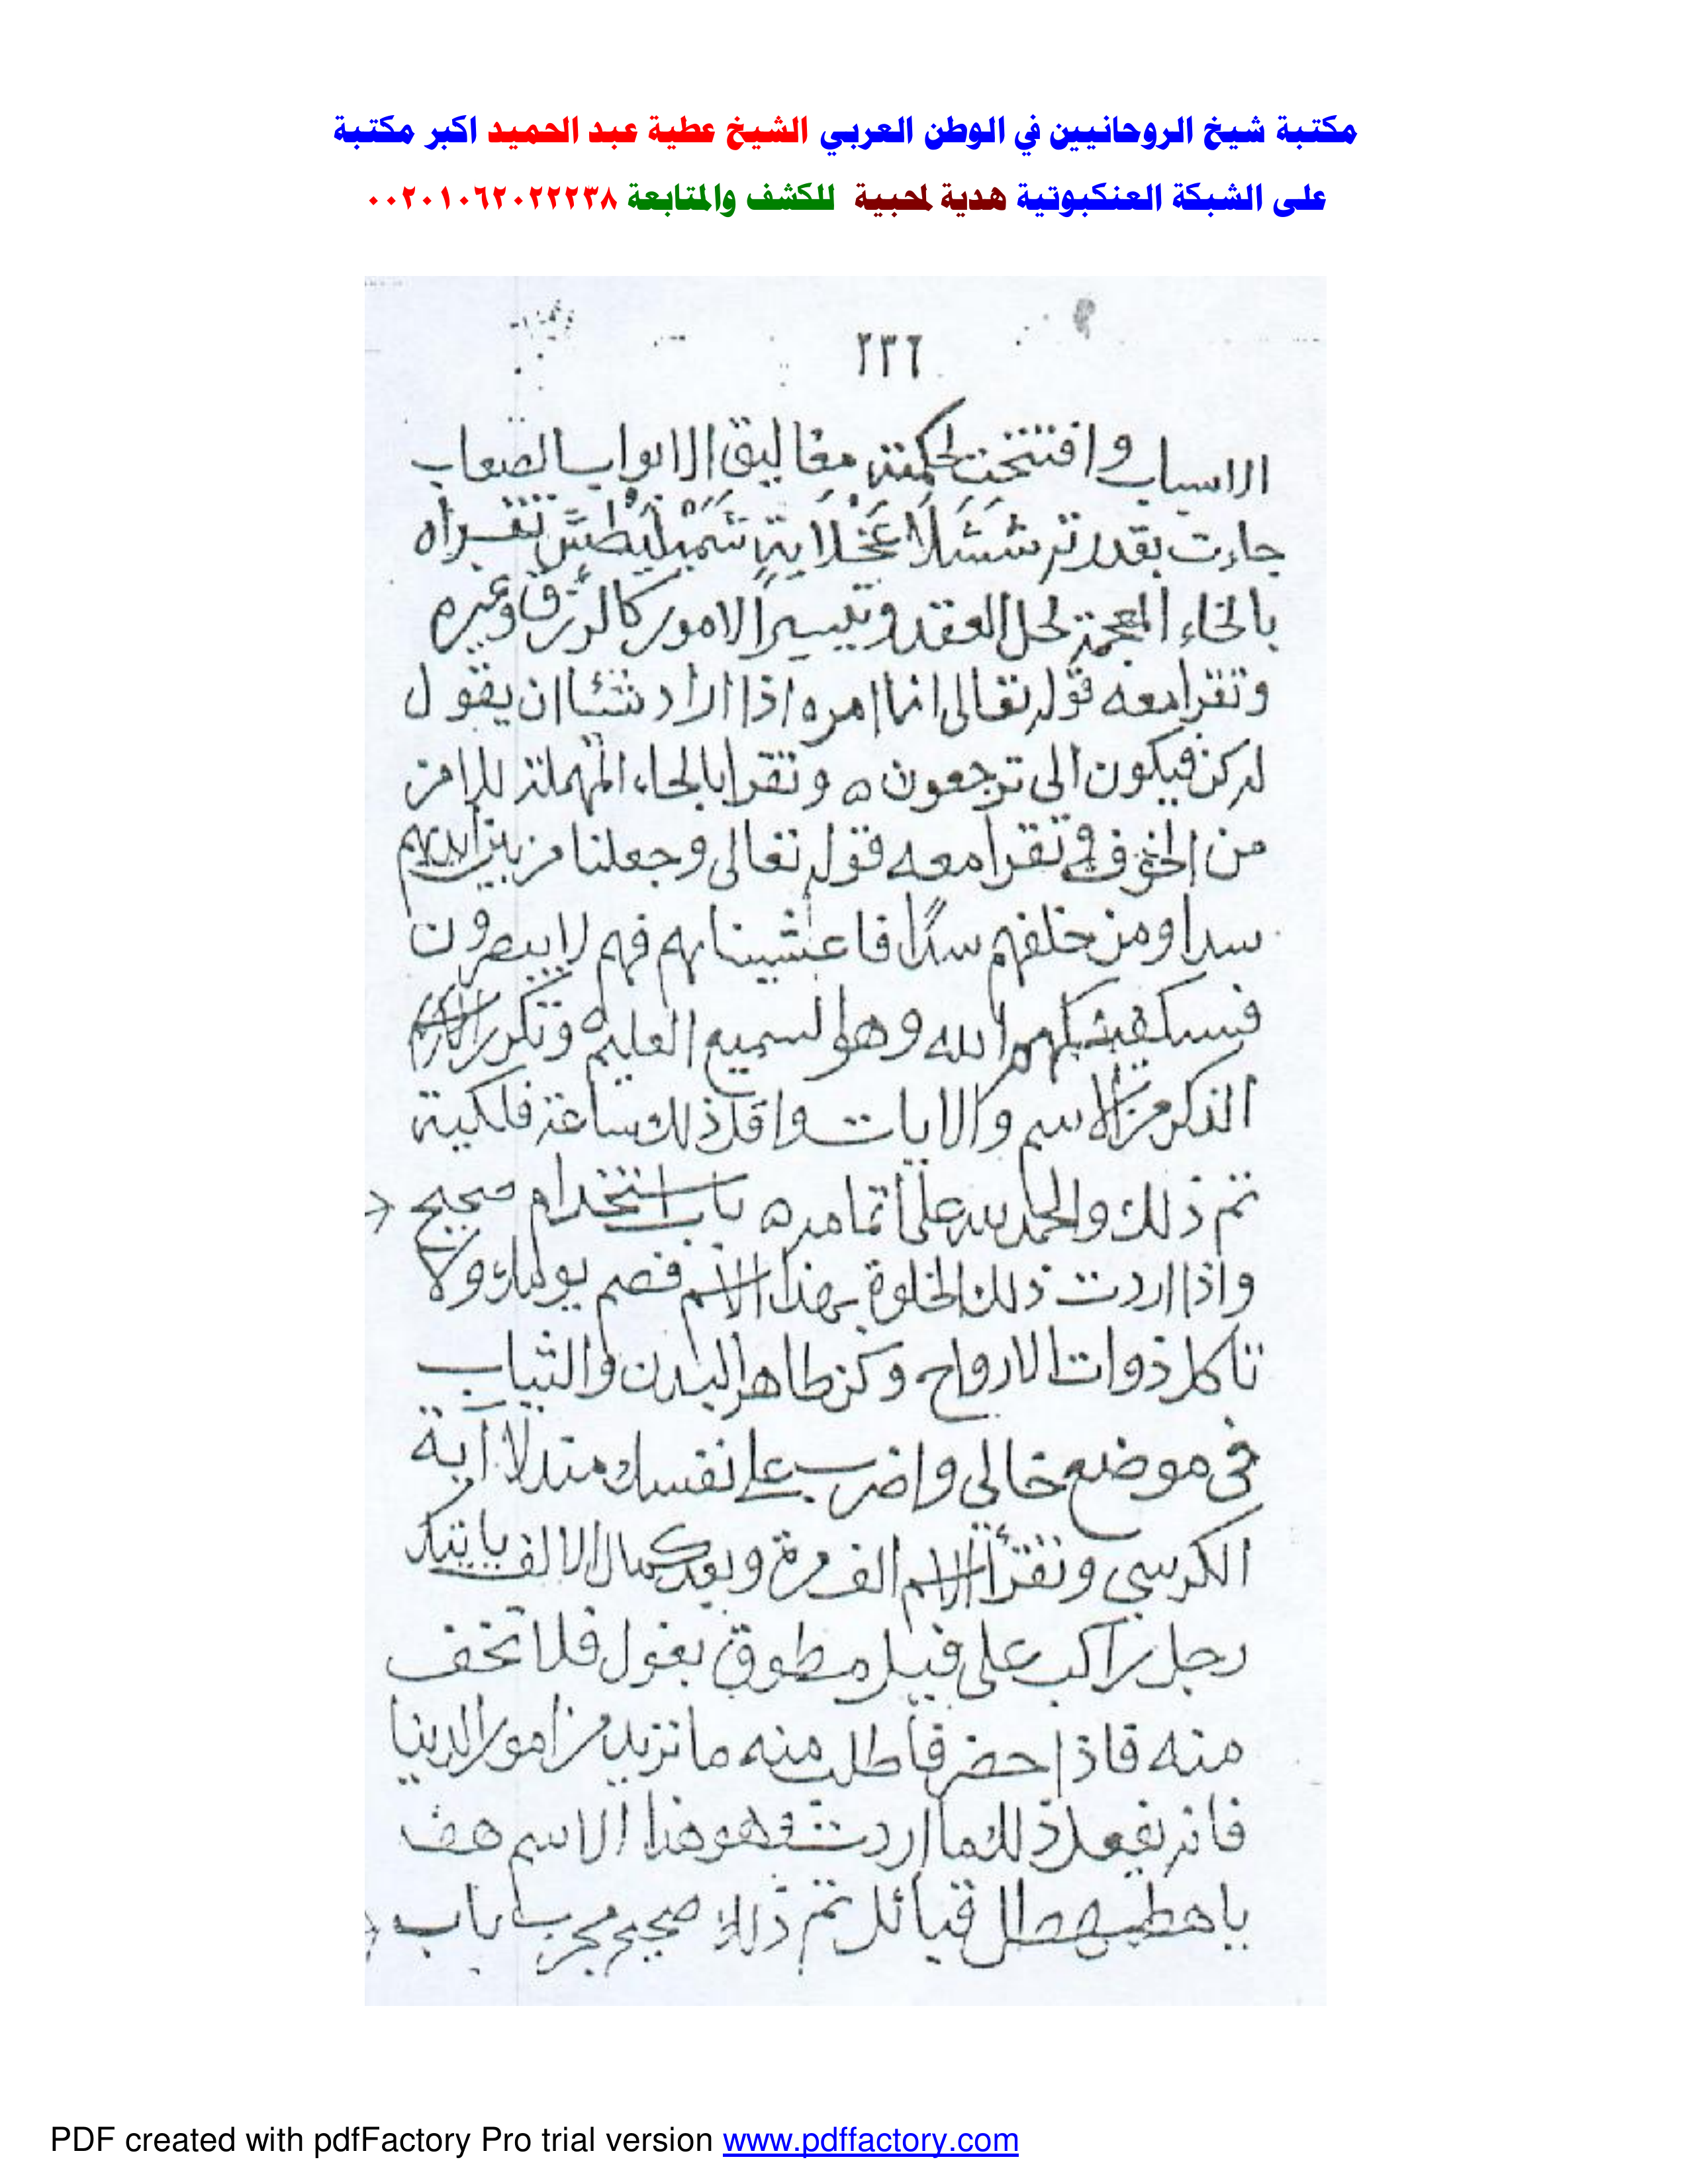 مكتبة شيخ الروحانيين في الوطن العربي الشيخ عطية عبد الحميد اكبر مكتبة
على الشبكة العنكبوتية هدية لمحبية للكشف والمتابعة ٠٠٢٠١٠٦٢٠٢٢٢٣٨
٢٣٦
الاسباب وافتتحت بحكمته مغاليق الابواب الصعاب
جاءت بقدرته تقراه
بالخاء المعجمة لحل العقد وتيسير الامور كالرزق وغيره
وتقرا معه قوله تعالى انما امره اذا اراد شئا ان يقول
له كن فيكون الى ترجعون ه وتقرا بالحاء المهملة للامن
من الخوف وتقرا معه قوله تعالى وجعلنا من بين ايديهم
سدا ومن خلفهم سدًا فاغشيناهم فهم لا يبصرون
فسيكفيكهم الله وهو السميع العليم ه وتكرر
الذكر من الاسم والايات واقل ذلك ساعة فلكية
تم ذلك والحمد لله على تمامه ه باب استخدام صحيح
واذا اردت ذلك الخلوة بهذا الاسم فصم يومك ولا
تاكل ذوات الارواح وكن طاهر البدن والثياب
فى موضع خالي واضرب على نفسك مندلا آية
الكرسي وتقرأ الاسم الف مرة وبعد كمال الالف ياتيك
رجل راكب على فيل مطوق بغول فلا تخف
منه فاذا حضر فاطلب منه ما تريد من امور الدنيا
فانه يفعل ذلك ما اردت فهو هذا الاسم هف
ياهطيهطل قيائل تم ذلك صحيح مجرب باب
PDF created with pdfFactory Pro trial version www.pdffactory.com